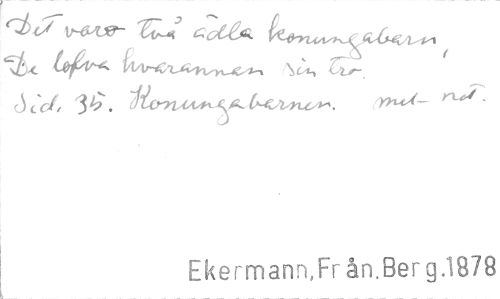 Det varo två ädla konungabarn,
De lofva hvarannan sin tro.
Sid. 35. Konungabarnen. met not.
Ekermann, Från. Berg. 1878